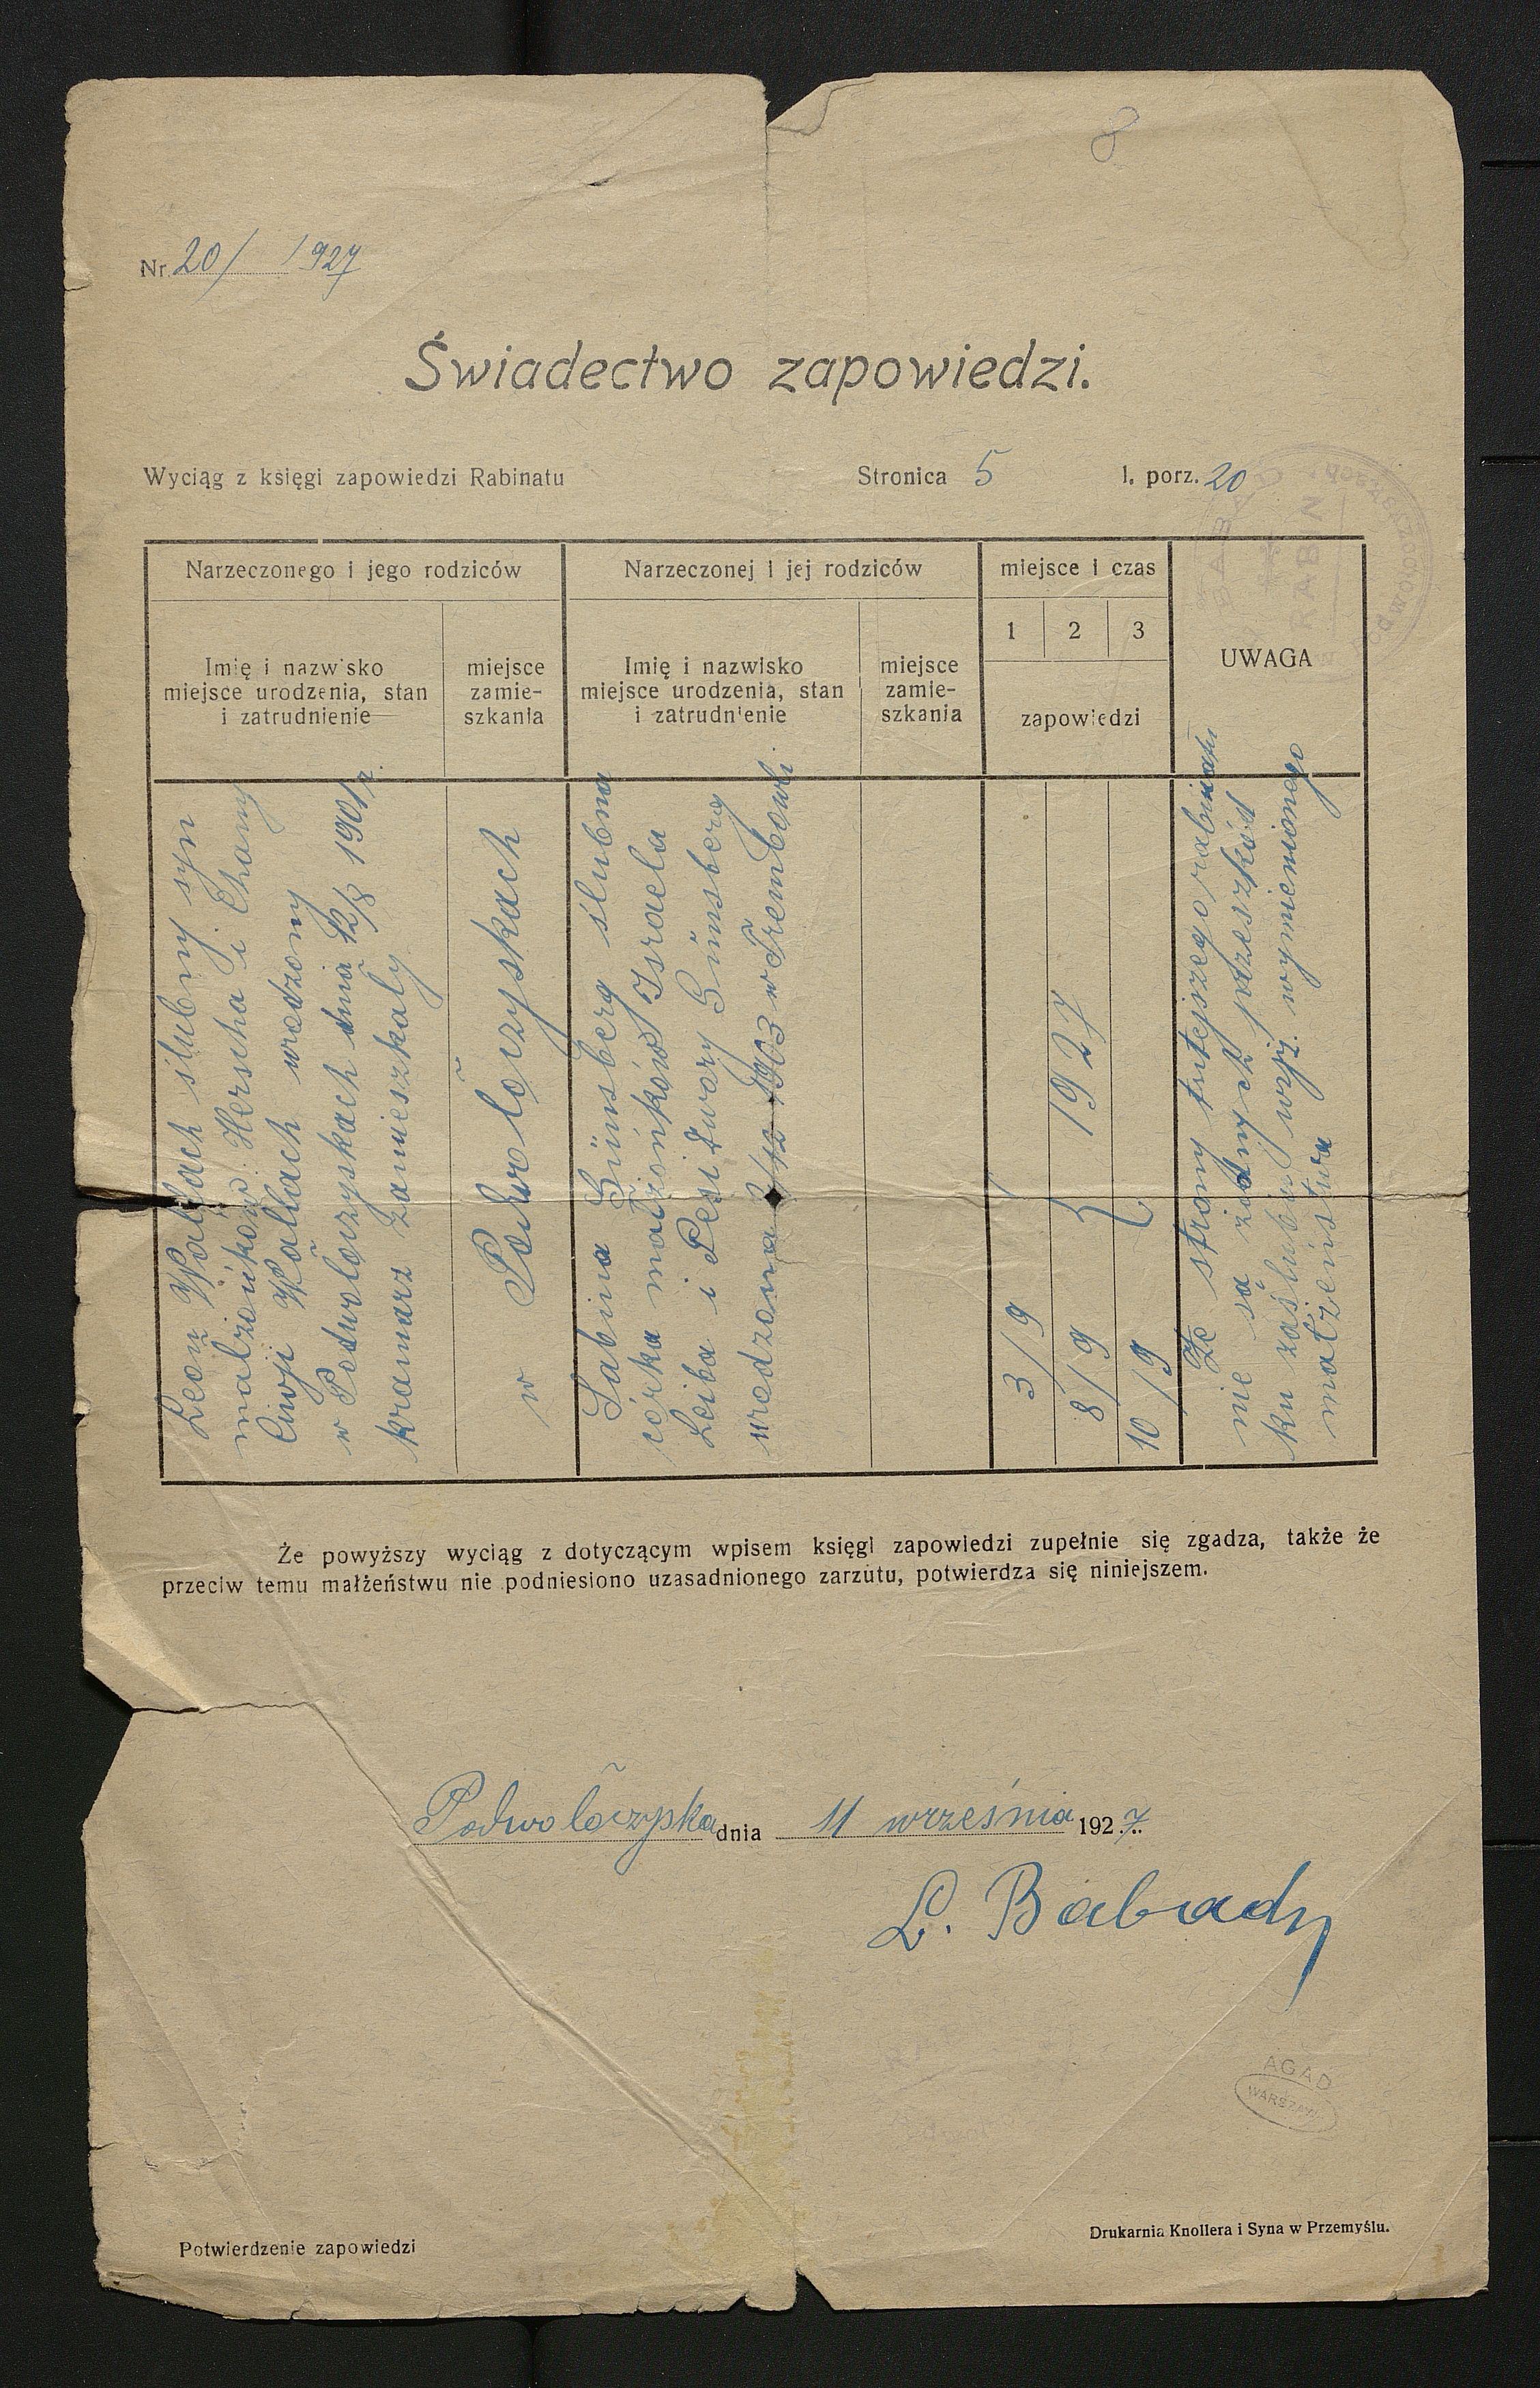 8
Nr. 20/ /1927
Świadectwo zapowiedzi.
Wyciąg z księgi zapowiedzi Rabinatu Stronica 5 l. porz. 20
Narzeczonego i jego rodziców
Narzeczonej i jej rodziców
miejsce i czas
UWAGA
Imię i nazwisko
miejsce urodzenia, stan
i zatrudnienie
miejsce
zamie-
szkania
Imię i nazwisko
miejsce urodzenia, stan
i zatrudnienie
miejsce
zamie-
szkania
1 2 3
zapowiedzi
Leon Wallach ślubny syn
małżonków Herscha i Chany
Ciwji Wallach urodzony
w Podwołoczyskach dnia 12/8 1901 r.
kramarz zamieszkały
w Podwołoczyskach
Sabina Günsberg ślubna
córka małżonków Israela
Leiba i Pesi Dwory Günsberg
urodzona 1903 w Trembowli.
3/9
8/9
10/9
1927
Ze strony tutejszego rabinatu
nie są żadnych przeszkód
ku zaślubu wyż. wymienionego
małżeństwa
BABAD
RABIN
Że powyższy wyciąg z dotyczącym wpisem księgi zapowiedzi zupełnie się zgadza, także że
przeciw temu małżeństwu nie podniesiono uzasadnionego zarzutu, potwierdza się niniejszem.
Podwołoczyska dnia 11 września 1927.
L. Babad
AGAD
WARSZAWA
Potwierdzenie zapowiedzi
Drukarnia Knollera i Syna w Przemyślu.